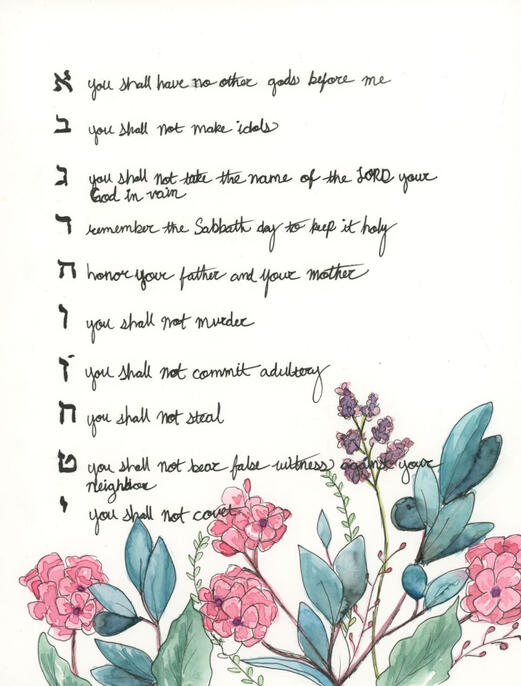 א you shall have no other gods before me
ב you shall not make idols
ג you shall not take the name of the LORD your
God in vain
ד remember the Sabbath day to keep it holy
ה honor your father and your mother
ו you shall not murder
ז you shall not commit adultery
ח you shall not steal
ט you shall not bear false witness against your
neighbor
י you shall not covet